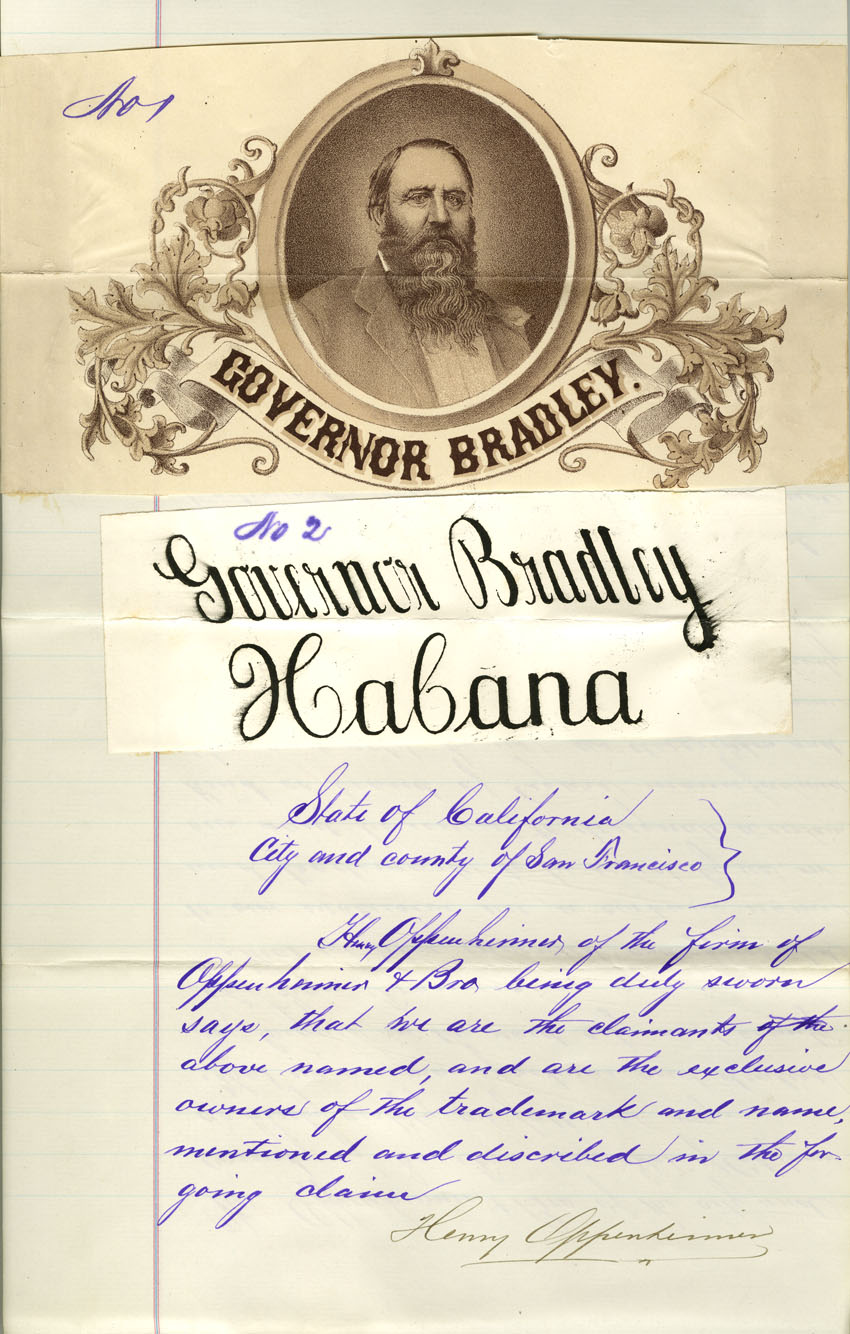 No 1
GOVERNOR BRADLEY.
No 2
Governor Bradley
Habana
State of California
City and county of San Francisco
Henry Oppenheimer, of the firm of
Oppenheimer & Bro, being duly sworn
says, that we are the claimants of the
above named, and are the exclusive
owners of the trademark and name,
mentioned and discribed in the for-
going claim
Henry Oppenheimer